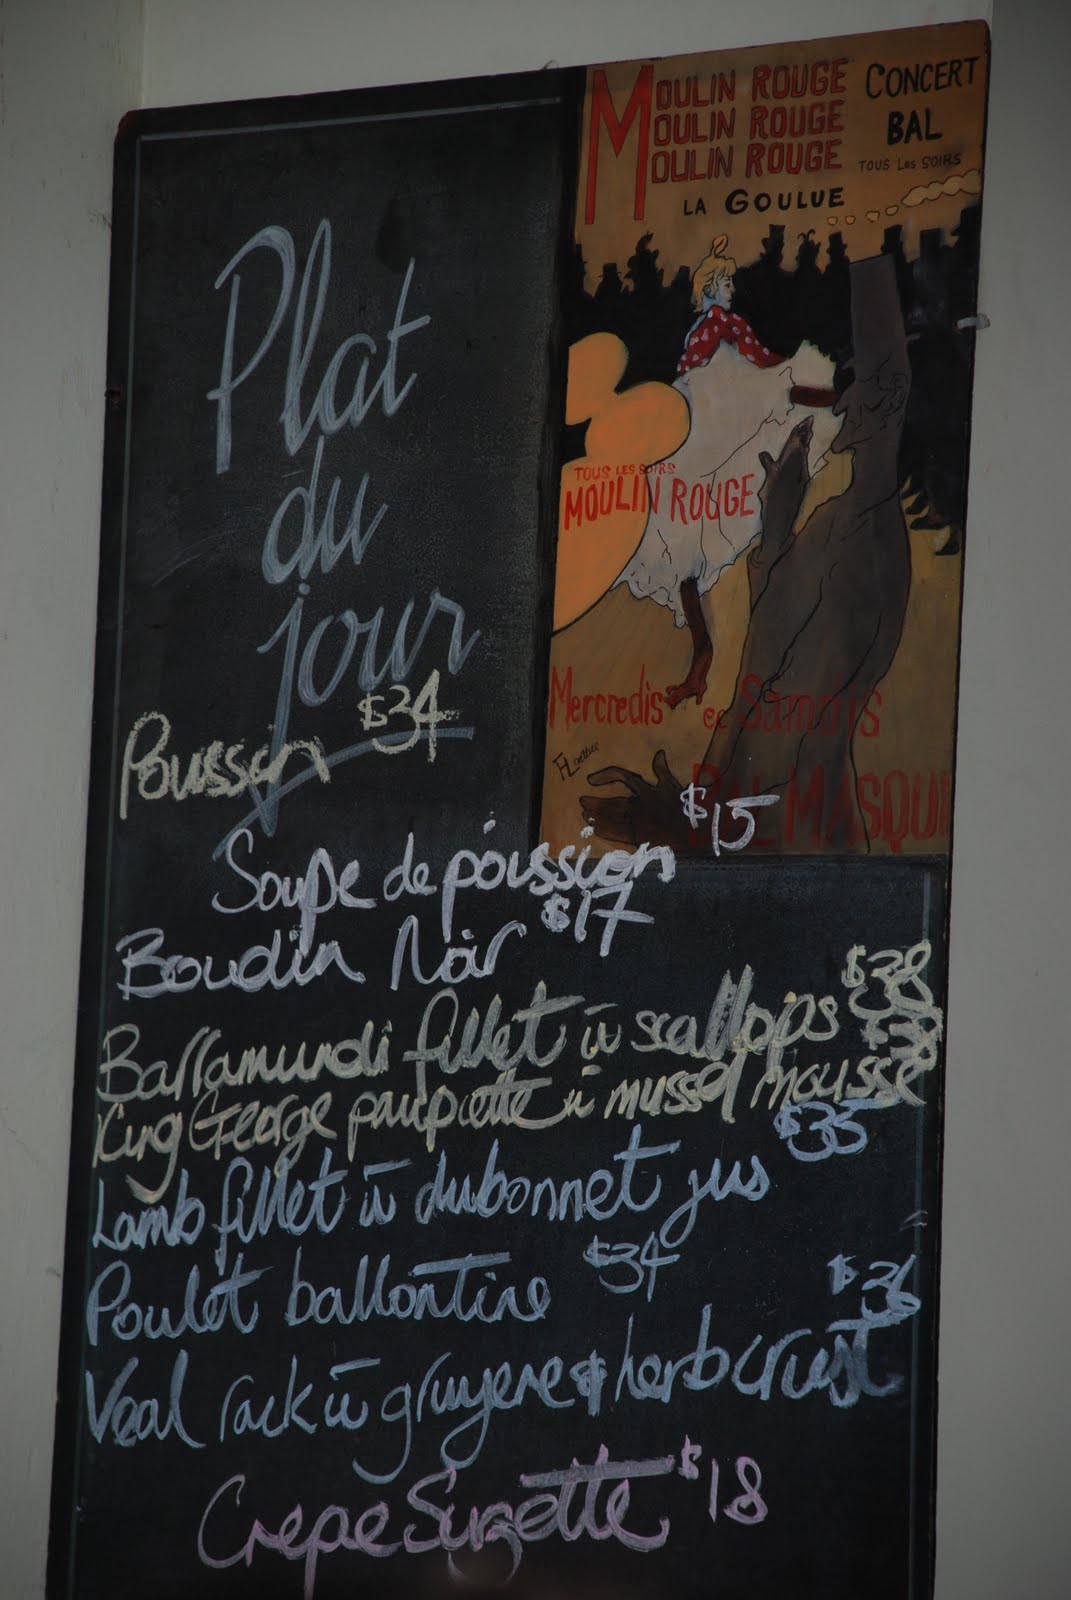 MOULIN ROUGE
MOULIN ROUGE
MOULIN ROUGE
CONCERT
BAL
TOUS LES SOIRS
LA GOULUE
TOUS LES SOIRS
MOULIN ROUGE
Mercredis et Samdis
BAL MASQUE
Plat
du
jour
Poussin $34
Soupe de poission $15
Boudin Noir $17
Barramundi fillet w scallops $38
King George paupiette w mussel mousse $38
Lamb fillet w dubonnet jus $35
Poulet ballontine $34
Veal rack w gruyere & herb crust $36
Crepe Suzette $18